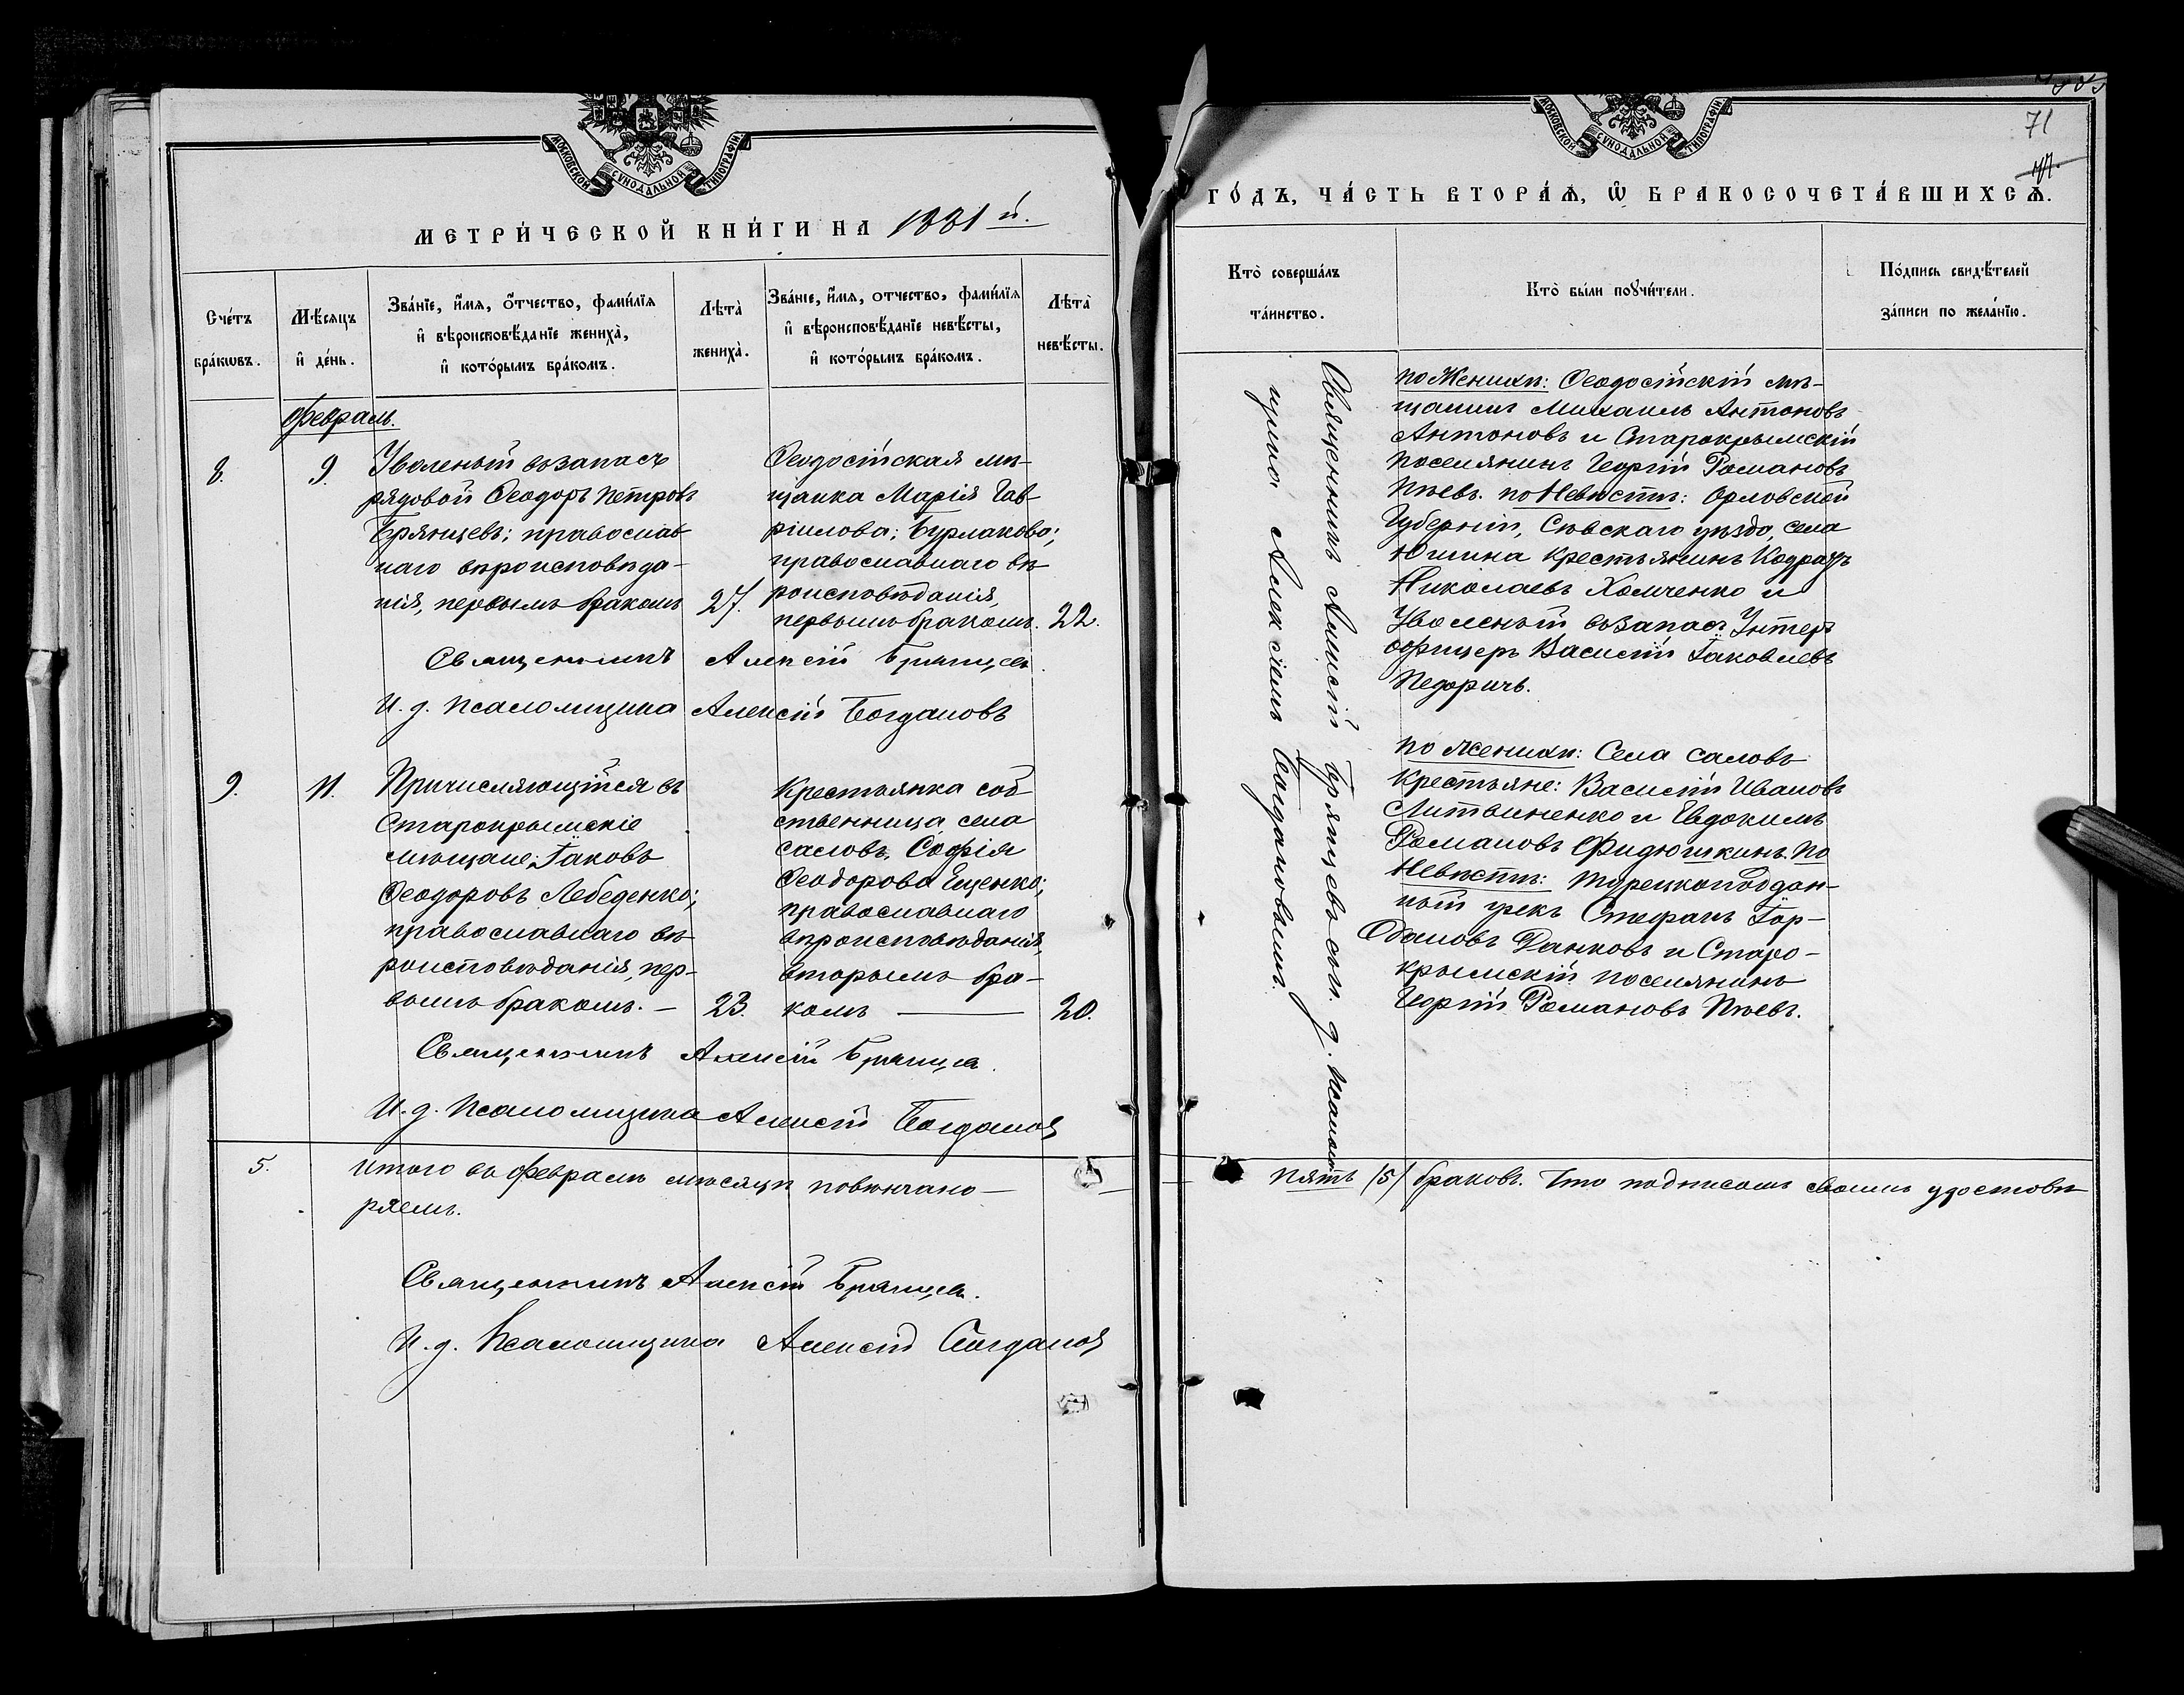 МОСКОВСКОЙ СѴНОДАЛЬНОЙ ТИПОГРАФІИ
МЕТРИ́ЧЕСКОЙ КНИ́ГИ НА 1881 й.
Сче́тъ бра́кѡвъ.
Мѣ́сяцъ и҆ де́нь.
Зва́нїе, и҆́мя, ѻ҆́тчество, фами́лїя
и҆ вѣроисповѣ́данїе жениха̀,
и҆ кото́рымъ бра́комъ.
Лѣта̀ жениха̀.
Зва́нїе, и҆́мя, отчество, фами́лїя
и҆ вѣроисповѣ́данїе невѣ́сты,
и҆ кото́рымъ бра́комъ.
Лѣта̀ невѣ́сты.
Февраль.
8.
9.
Уволеный въ запасъ
рядовой Ѳеодоръ Петровъ
Брянцевъ; православ
наго вѣроисповѣда-
нія, первымъ бракомъ
27.
Ѳеодосійская мѣ-
щанка Марія Гав-
ріилова; Бурлакова;
православнаго вѣ
роисповѣданія,
первымъ бракомъ.
22.
Священникъ Алексій Брянцев.
И. д. псаломщика Алексій Богдановъ
9.
11.
Причисляющійся въ
Старокрымскіе
мѣщане; Іаковъ
Ѳеодоровъ Лебеденко;
православнаго вѣ
роисповѣданія, пер-
вымъ бракомъ. —
23.
Крестьянка соб
ственница села
саловъ, Софія
Ѳеодорова Ещенко;
православнаго
вѣроисповѣданія,
вторымъ бра-
комъ ——
20.
Священникъ Алексій Брянцев.
И. д. Псаломщика Алексій Богдановъ
5.
Итого въ Февралѣ мѣсяцѣ повѣнчано —
ряемъ.
Священникъ Алексій Брянцев.
И. д. Псаломщика Алексій Богдановъ
МОСКОВСКОЙ СѴНОДАЛЬНОЙ ТИПОГРАФІИ
71
ГО́ДЪ, ЧА́СТЬ ВТОРА́Ѧ, Ѽ БРАКОСОЧЕТА́ВШИХСѦ.
Кто̀ соверша́лъ
та́инство.
Кто̀ бы́ли поꙋчи́тели.
По́дпись свидѣ́телей
за́писи по жела́нїю.
Священникъ Алексій Брянцевъ съ и. д. псаломщика Алексіемъ Богдановымъ.
по Женихѣ: Ѳеодосійскій мѣ-
щанинъ Михаилъ Антоновъ
Антоновъ и Старокрымскій
поселянинъ Георгій Романовъ
по Невѣстѣ: Орловской
Губерніи, Сѣвскаго уѣзда, села
Юшина крестьянинъ Кодратъ
Николаевъ Хомченко и
Уволеный въ запасъ Унтеръ
офицеръ Василій Іаковлевъ
Педоричъ.
по Женихѣ: Села саловъ
Крестьяне: Василій Ивановъ
Литвиненко и Евдокимъ
Романовъ Фидюшкинъ. по
Невѣстѣ: турецкоподдан-
ный грекъ Стефанъ Іор-
дановъ Данковъ и Старо-
крымскій поселянинъ
Георгій Романовъ
пять /5/ браковъ. Что подписомъ своимъ удостовѣ